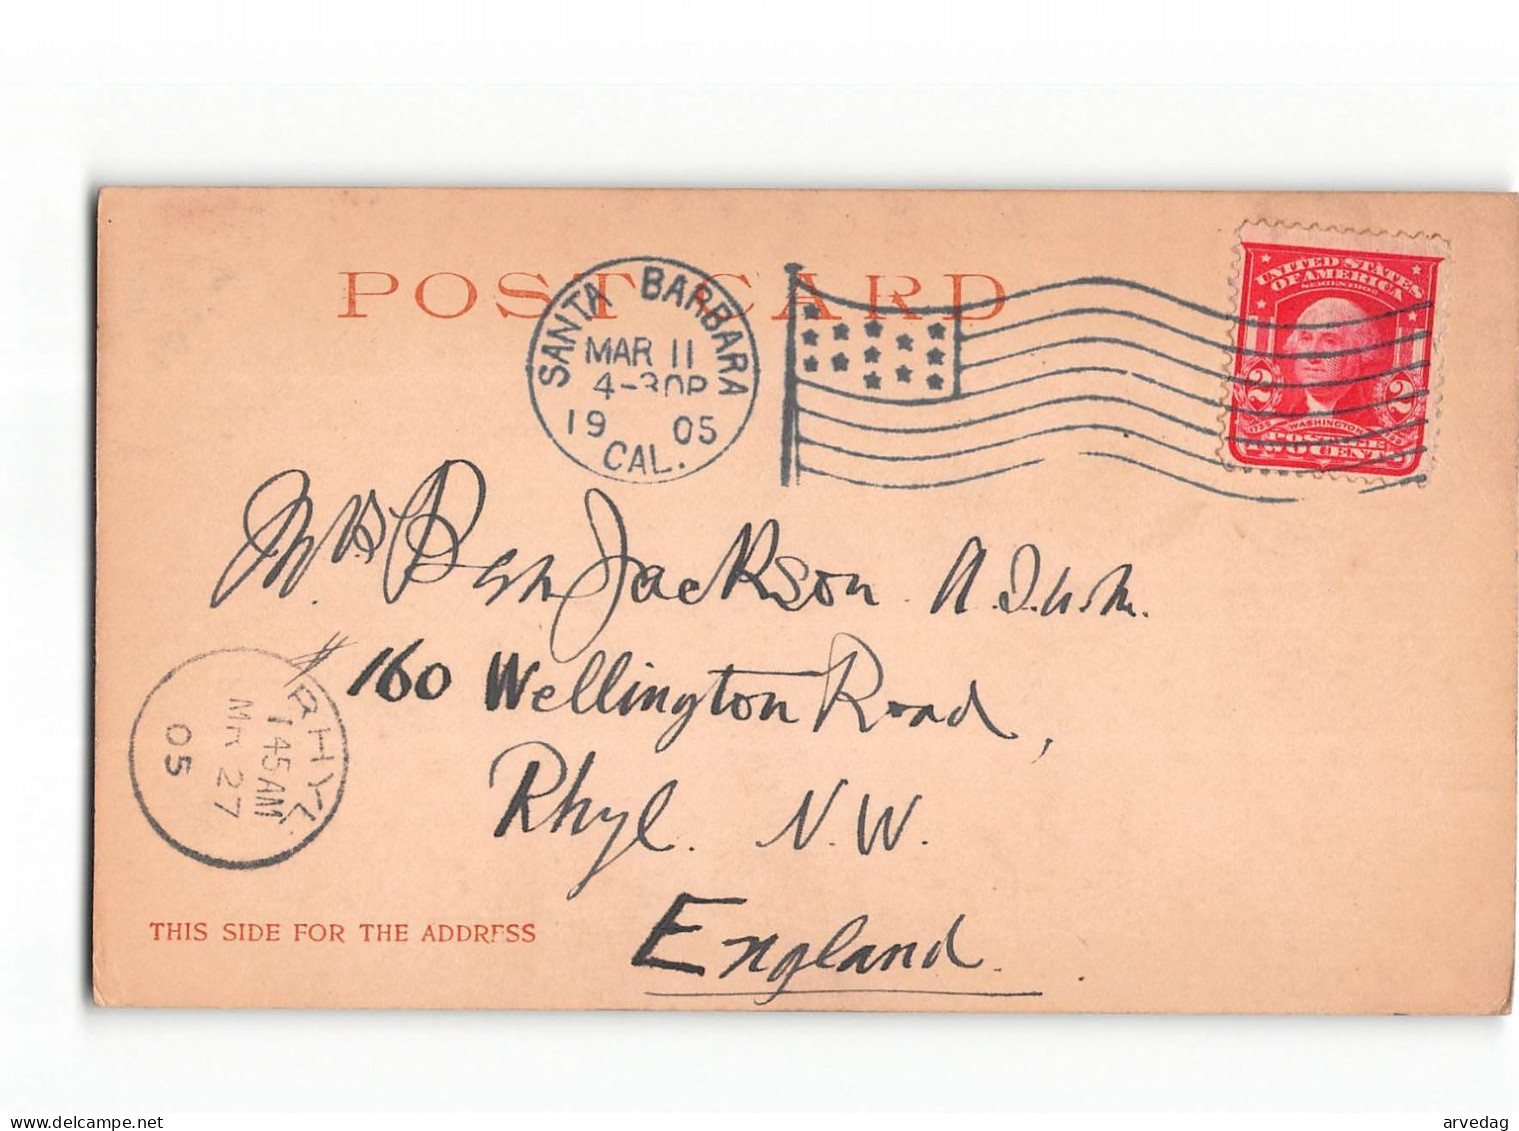 POST CARD
SANTA BARBARA
MAR 11
4-30P
19 05
CAL.
UNITED STATES
OF AMERICA
SERIES 1902
2 2
1732 WASHINGTON 1799
POSTAGE
TWO CENTS
Mr. Ben Jackson A.
# 160 Wellington Road,
Rhyl. N.W.
England.
RHYL
1 45 AM
MR 27
05
THIS SIDE FOR THE ADDRESS
delcampe.net
arvedag